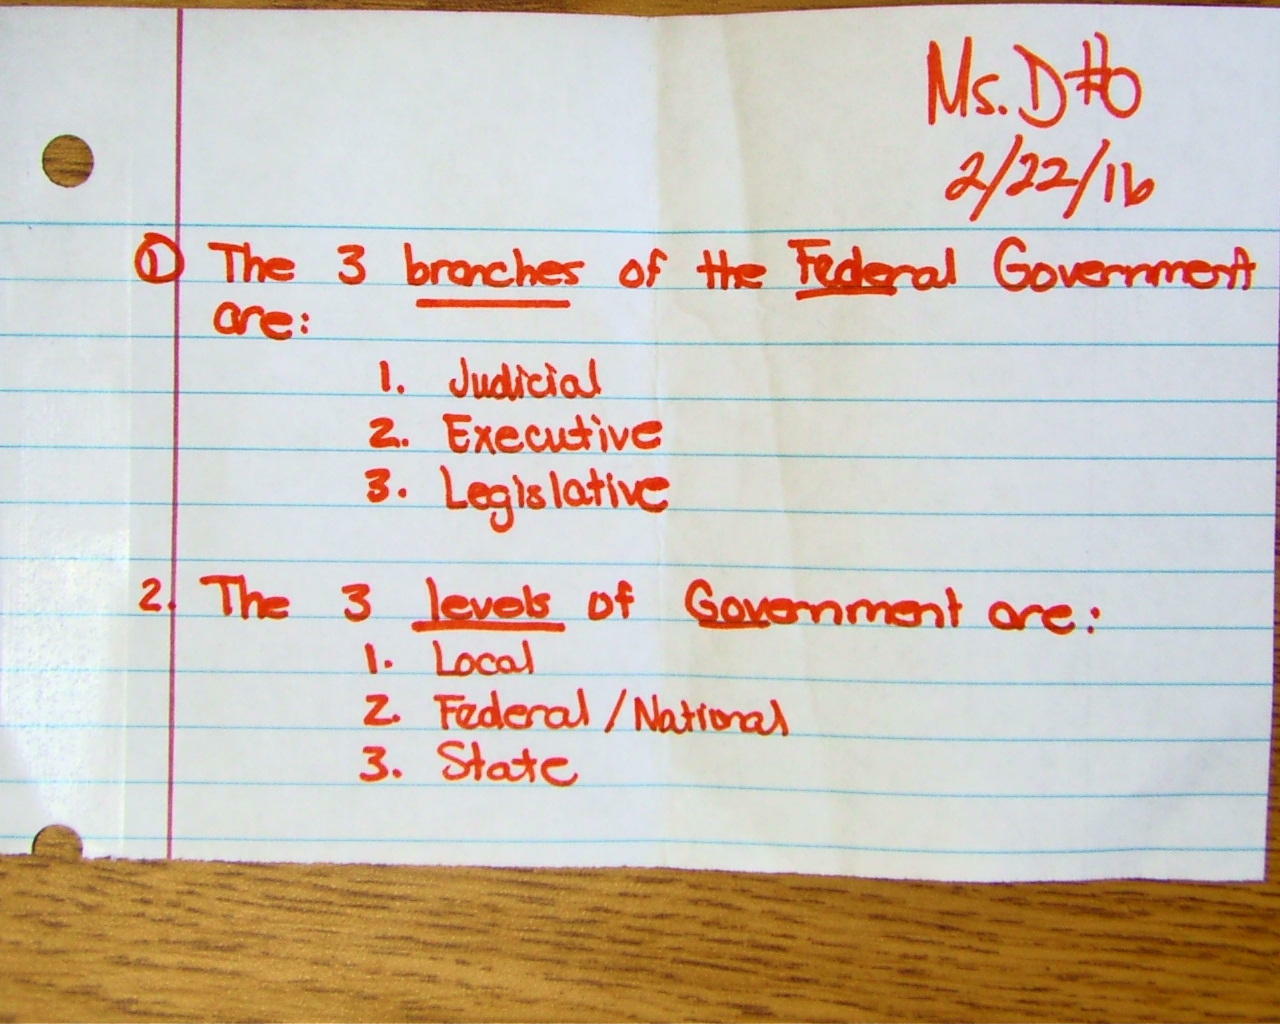 Ms. D #6
2/22/16
① The 3 branches of the Federal Government
are:
1. Judicial
2. Executive
3. Legislative
2. The 3 levels of Government are:
1. Local
2. Federal / National
3. State